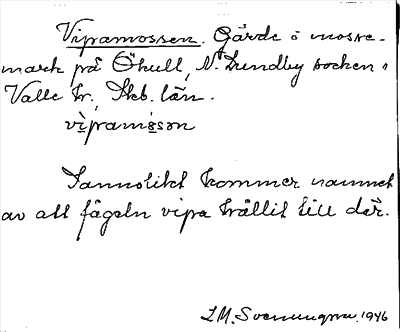 Vipramossen. Gärde i mosse-
mark på Öhull, N. Lundby socken i
Valle hr., Skb. län.
vipramåsən
Sannolikt kommer namnet
av att fågeln vipa hållit till där.
1946